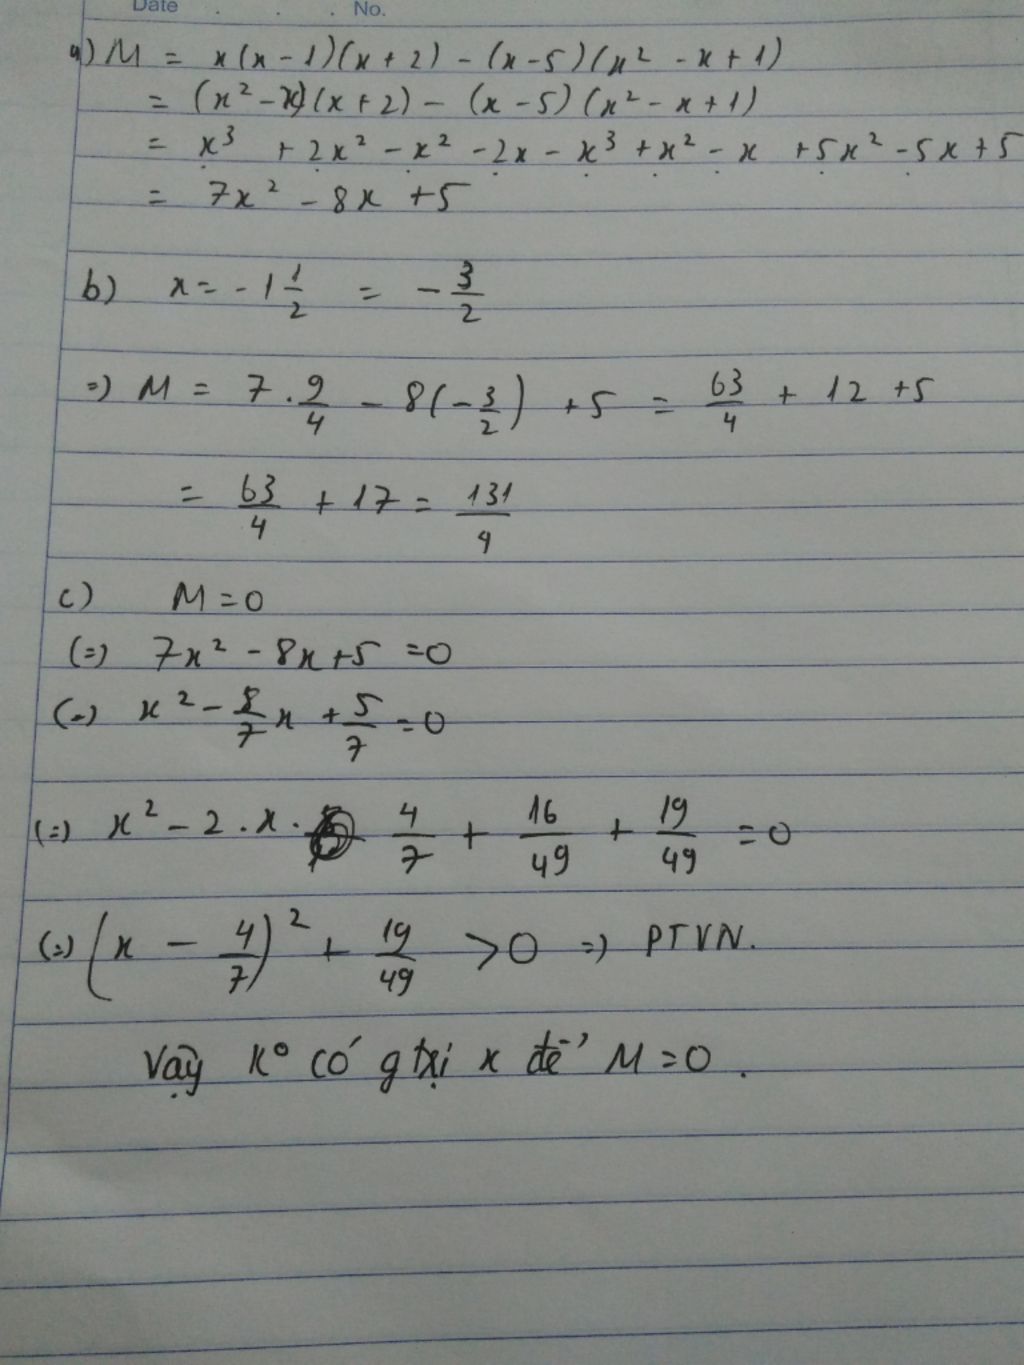 Date . . . No.
a) M = x(x - 1)(x + 2) - (x - 5)(x² - x + 1)
= (x² - x)(x + 2) - (x - 5)(x² - x + 1)
= x³ + 2x² - x² - 2x - x³ + x² - x + 5x² - 5x + 5
= 7x² - 8x + 5
b) x = -1 1/2 = - 3/2
=) M = 7 . 9/4 - 8(- 3/2) + 5 = 63/4 + 12 + 5
= 63/4 + 17 = 131/4
c) M = 0
(=) 7x² - 8x + 5 = 0
(=) x² - 8/7 x + 5/7 = 0
(=) x² - 2 . x . 4/7 + 16/49 + 19/49 = 0
(=) (x - 4/7)² + 19/49 > 0 =) PTVN.
Vậy K° có g trị x để M = 0 .